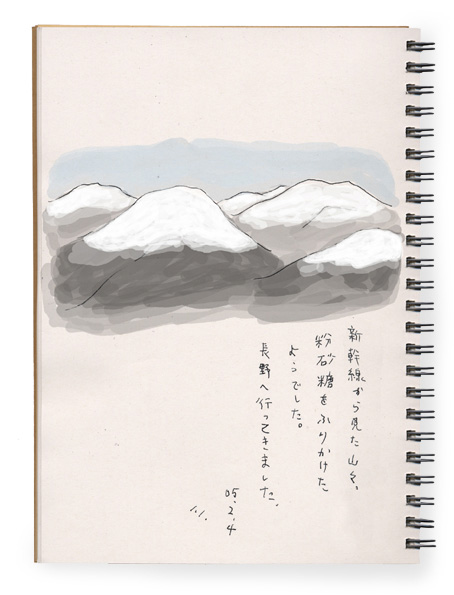 新幹線から見た山々、
粉砂糖をふりかけた
ようでした。
長野へ行ってきました。
05.2.4